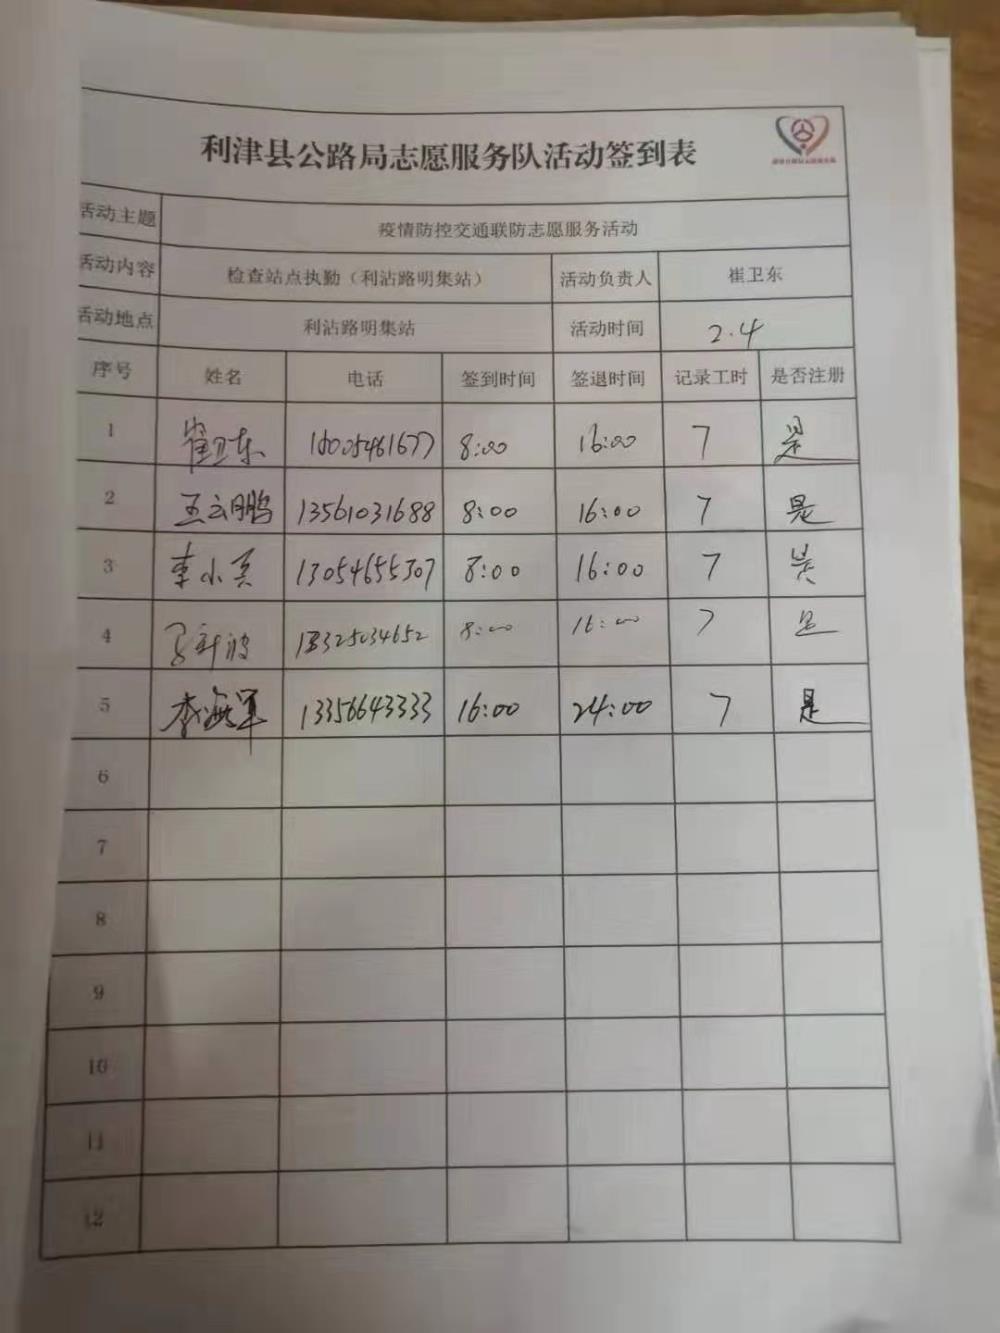 利津县公路局志愿服务队活动签到表
活动主题 疫情防控交通联防志愿服务活动
活动内容 检查站点执勤（利沾路明集站） 活动负责人 崔卫东
活动地点 利沾路明集站 活动时间 2.4
序号 姓名 电话 签到时间 签退时间 记录工时 是否注册
1 崔卫东 8:00 16:00 7 是
2 王云鹏 13561031688 8:00 16:00 7 是
3 李小英 13054655307 8:00 16:00 7 是
4 8:00 16:00 7 是
5 李海军 13356643333 16:00 24:00 7 是
6
7
8
9
10
11
12